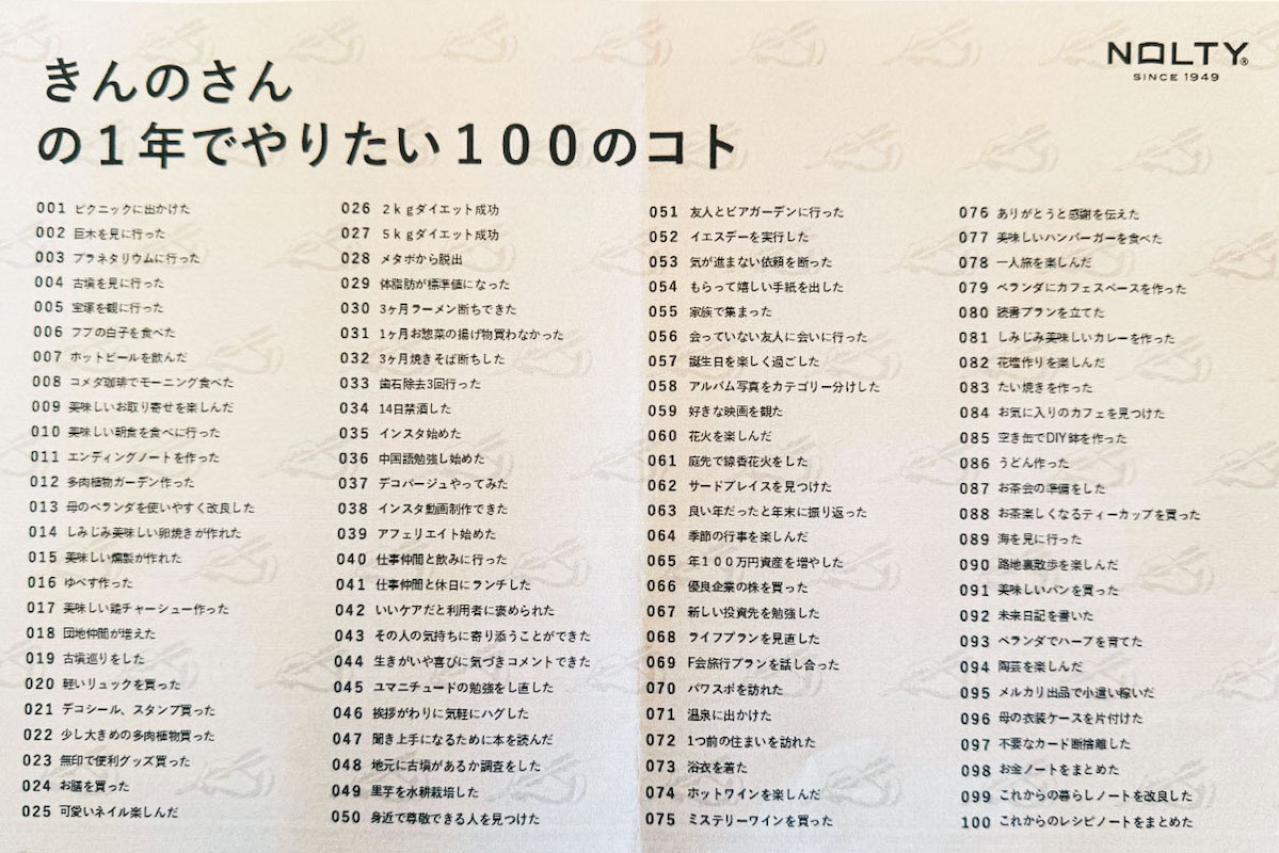 きんのさん
の1年でやりたい100のコト
NOLTY®
SINCE 1949
001 ピクニックに出かけた
002 巨木を見に行った
003 プラネタリウムに行った
004 古墳を見に行った
005 宝塚を観に行った
006 フグの白子を食べた
007 ホットビールを飲んだ
008 コメダ珈琲でモーニング食べた
009 美味しいお取り寄せを楽しんだ
010 美味しい朝食を食べに行った
011 エンディングノートを作った
012 多肉植物ガーデン作った
013 母のベランダを使いやすく改良した
014 しみじみ美味しい卵焼きが作れた
015 美味しい燻製が作れた
016 ゆべす作った
017 美味しい鶏チャーシュー作った
018 団地仲間が増えた
019 古墳巡りをした
020 軽いリュックを買った
021 デコシール、スタンプ買った
022 少し大きめの多肉植物買った
023 無印で便利グッズ買った
024 お膳を買った
025 可愛いネイル楽しんだ
026 2kgダイエット成功
027 5kgダイエット成功
028 メタボから脱出
029 体脂肪が標準値になった
030 3ヶ月ラーメン断ちできた
031 1ヶ月お惣菜の揚げ物買わなかった
032 3ヶ月焼きそば断ちした
033 歯石除去3回行った
034 14日禁酒した
035 インスタ始めた
036 中国語勉強し始めた
037 デコパージュやってみた
038 インスタ動画制作できた
039 アフェリエイト始めた
040 仕事仲間と飲みに行った
041 仕事仲間と休日にランチした
042 いいケアだと利用者に褒められた
043 その人の気持ちに寄り添うことができた
044 生きがいや喜びに気づきコメントできた
045 ユマニチュードの勉強をし直した
046 挨拶がわりに気軽にハグした
047 聞き上手になるために本を読んだ
048 地元に古墳があるか調査をした
049 里芋を水耕栽培した
050 身近で尊敬できる人を見つけた
051 友人とビアガーデンに行った
052 イエスデーを実行した
053 気が進まない依頼を断った
054 もらって嬉しい手紙を出した
055 家族で集まった
056 会っていない友人に会いに行った
057 誕生日を楽しく過ごした
058 アルバム写真をカテゴリー分けした
059 好きな映画を観た
060 花火を楽しんだ
061 庭先で線香花火をした
062 サードプレイスを見つけた
063 良い年だったと年末に振り返った
064 季節の行事を楽しんだ
065 年100万円資産を増やした
066 優良企業の株を買った
067 新しい投資先を勉強した
068 ライフプランを見直した
069 F会旅行プランを話し合った
070 パワスポを訪れた
071 温泉に出かけた
072 1つ前の住まいを訪れた
073 浴衣を着た
074 ホットワインを楽しんだ
075 ミステリーワインを買った
076 ありがとうと感謝を伝えた
077 美味しいハンバーガーを食べた
078 一人旅を楽しんだ
079 ベランダにカフェスペースを作った
080 読書プランを立てた
081 しみじみ美味しいカレーを作った
082 花壇作りを楽しんだ
083 たい焼きを作った
084 お気に入りのカフェを見つけた
085 空き缶でDIY鉢を作った
086 うどん作った
087 お茶会の準備をした
088 お茶楽しくなるティーカップを買った
089 海を見に行った
090 路地裏散歩を楽しんだ
091 美味しいパンを買った
092 未来日記を書いた
093 ベランダでハーブを育てた
094 陶芸を楽しんだ
095 メルカリ出品で小遣い稼いだ
096 母の衣装ケースを片付けた
097 不要なカード断捨離した
098 お金ノートをまとめた
099 これからの暮らしノートを改良した
100 これからのレシピノートをまとめた